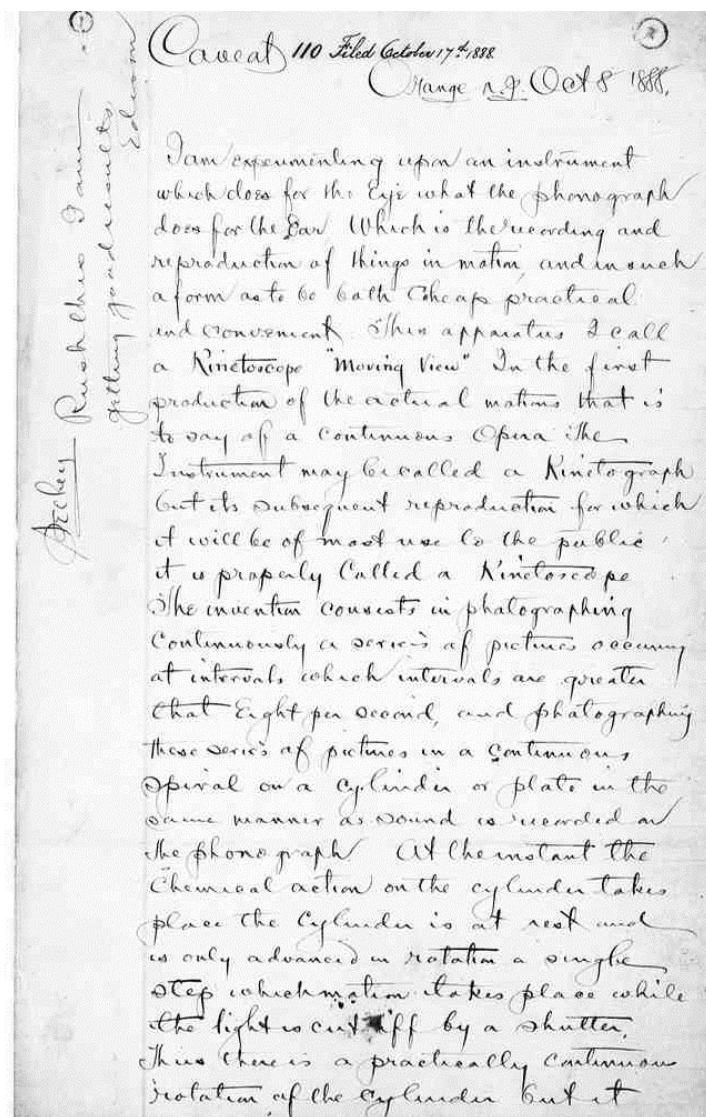 Caveat 110 Filed October 17th 1888.
Orange N.J. Oct 8 1888.
I am experimenting upon an instrument
which does for the Eye what the phonograph
does for the Ear Which is the recording and
reproduction of things in motion, and in such
a form as to be both Cheap practical
and convenient. This apparatus I call
a Kinetoscope "Moving View" In the first
production of the actual motions that is
to say of a continuous Opera The
Instrument may be called a Kinetograph
but its subsequent reproduction for which
it will be of most use to the public
it is properly Called a Kinetoscope
The invention consists in photographing
Continuously a series of pictures occuring
at intervals which intervals are greater
that Eight per second, and photographing
these series of pictures in a Continuous
Spiral on a cylinder or plate in the
same manner as sound is recorded on
the phonograph At the instant the
Chemical action on the cylinder takes
place the Cylinder is at rest and
is only advanced in rotation a single
step which motion takes place while
the light is cut iff by a shutter.
Thus there is a practically continuous
rotation of the Cylinder but it
Rush this I am
getting good results
Edison